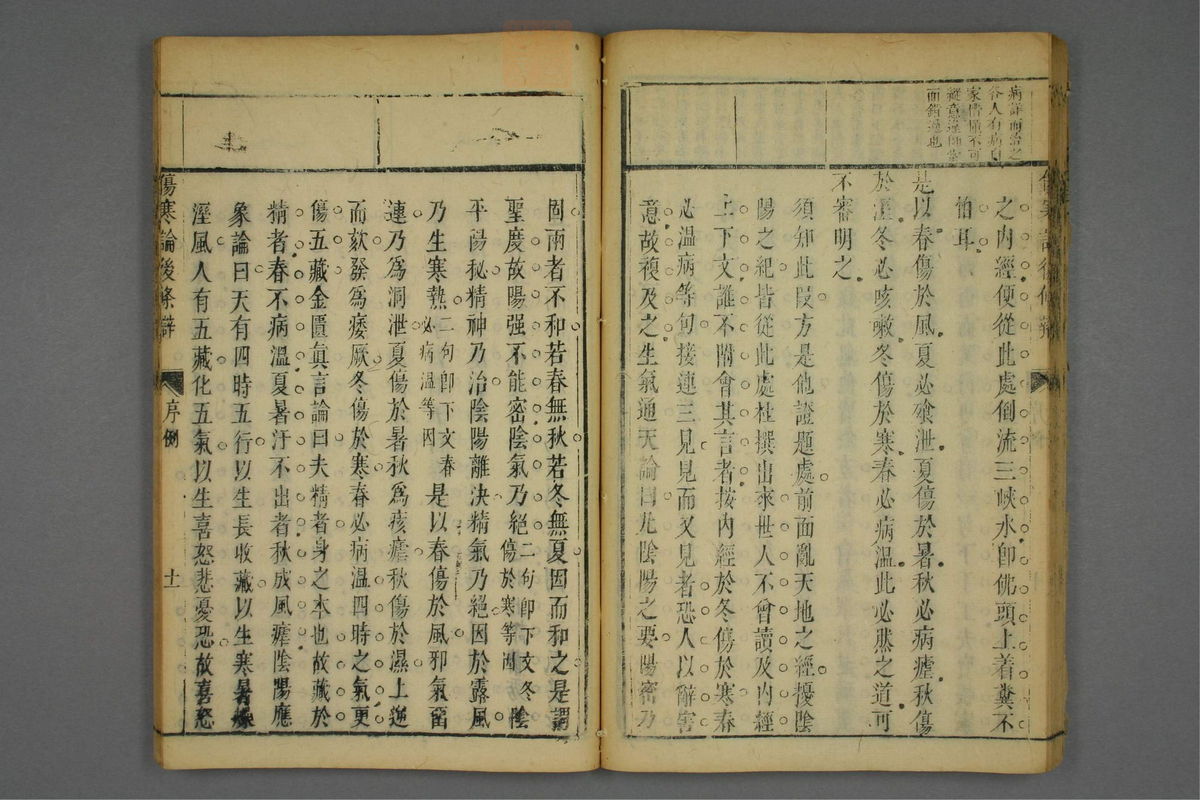 病詳而治之
面錯過也
之內經便從此處倒流三峽水卽佛頭上着糞不
怕耳
是以春傷於風夏必飧泄夏傷於暑秋必病瘧秋傷
於溼冬必咳嗽冬傷於寒春必病溫此必然之道可
不審明之
須知此段方是他證題處前面亂天地之經擾陰
陽之紀皆從此處杜撰出來世人不會讀及內經
上下文誰不附會其言者按內經於冬傷於寒春
必溫病等句接連三見見而又見者恐人以辭害
意故複及之生氣通天論曰凡陰陽之要陽密乃
固兩者不和若春無秋若冬無夏因而和之是謂
聖度故陽强不能密陰氣乃絕二句卽下文冬傷於寒等因陰
平陽秘精神乃治陰陽離決精氣乃絕因於露風
乃生寒熱二句卽下文春必病溫等因是以春傷於風邪氣留
連乃爲洞泄夏傷於暑秋爲痎瘧秋傷於濕上逆
而欬發爲痿厥冬傷於寒春必病溫四時之氣更
傷五藏金匱眞言論曰夫精者身之本也故藏於
精者春不病溫夏暑汗不出者秋成風瘧陰陽應
象論曰天有四時五行以生長收藏以生寒暑燥
溼風人有五藏化五氣以生喜怒悲憂恐故喜怒
傷寒論後條辯
序例
十一